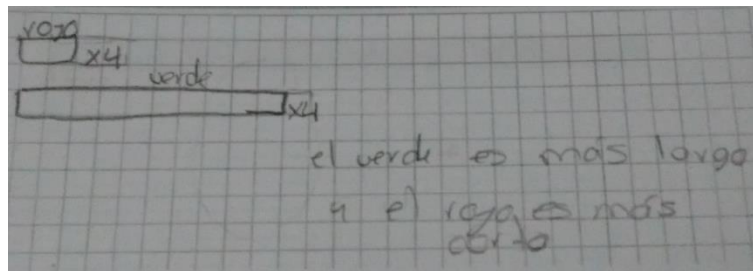 rojo
x4
verde
x4
el verde es más largo
y el rojo es más
corto